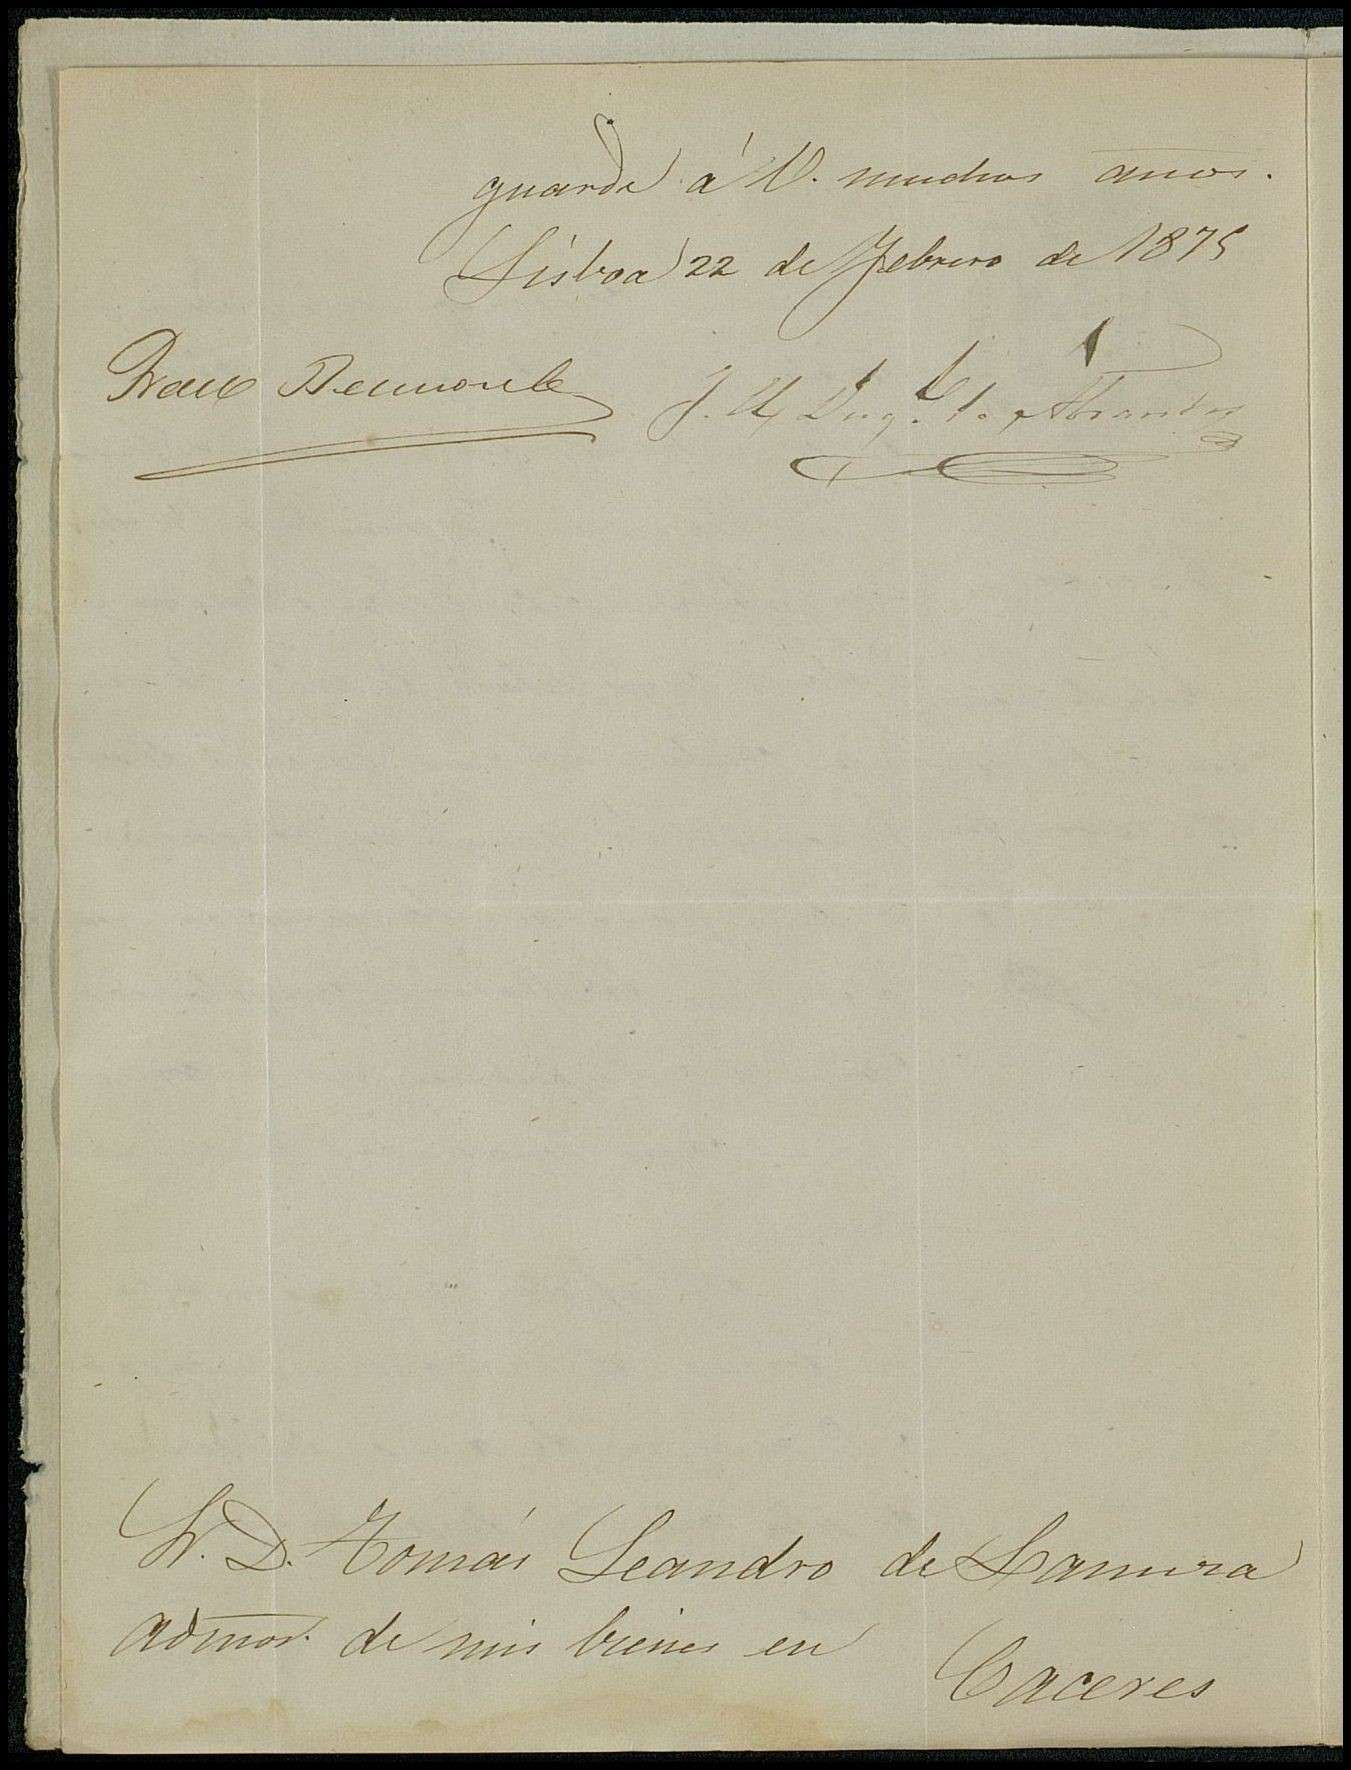 guarde á V. muchos años.
Lisboa 22 de Febrero de 1875
J. El Duq. de Abrantes
Sr. D. Tomás Leandro de
admor. de mis bienes en
Caceres